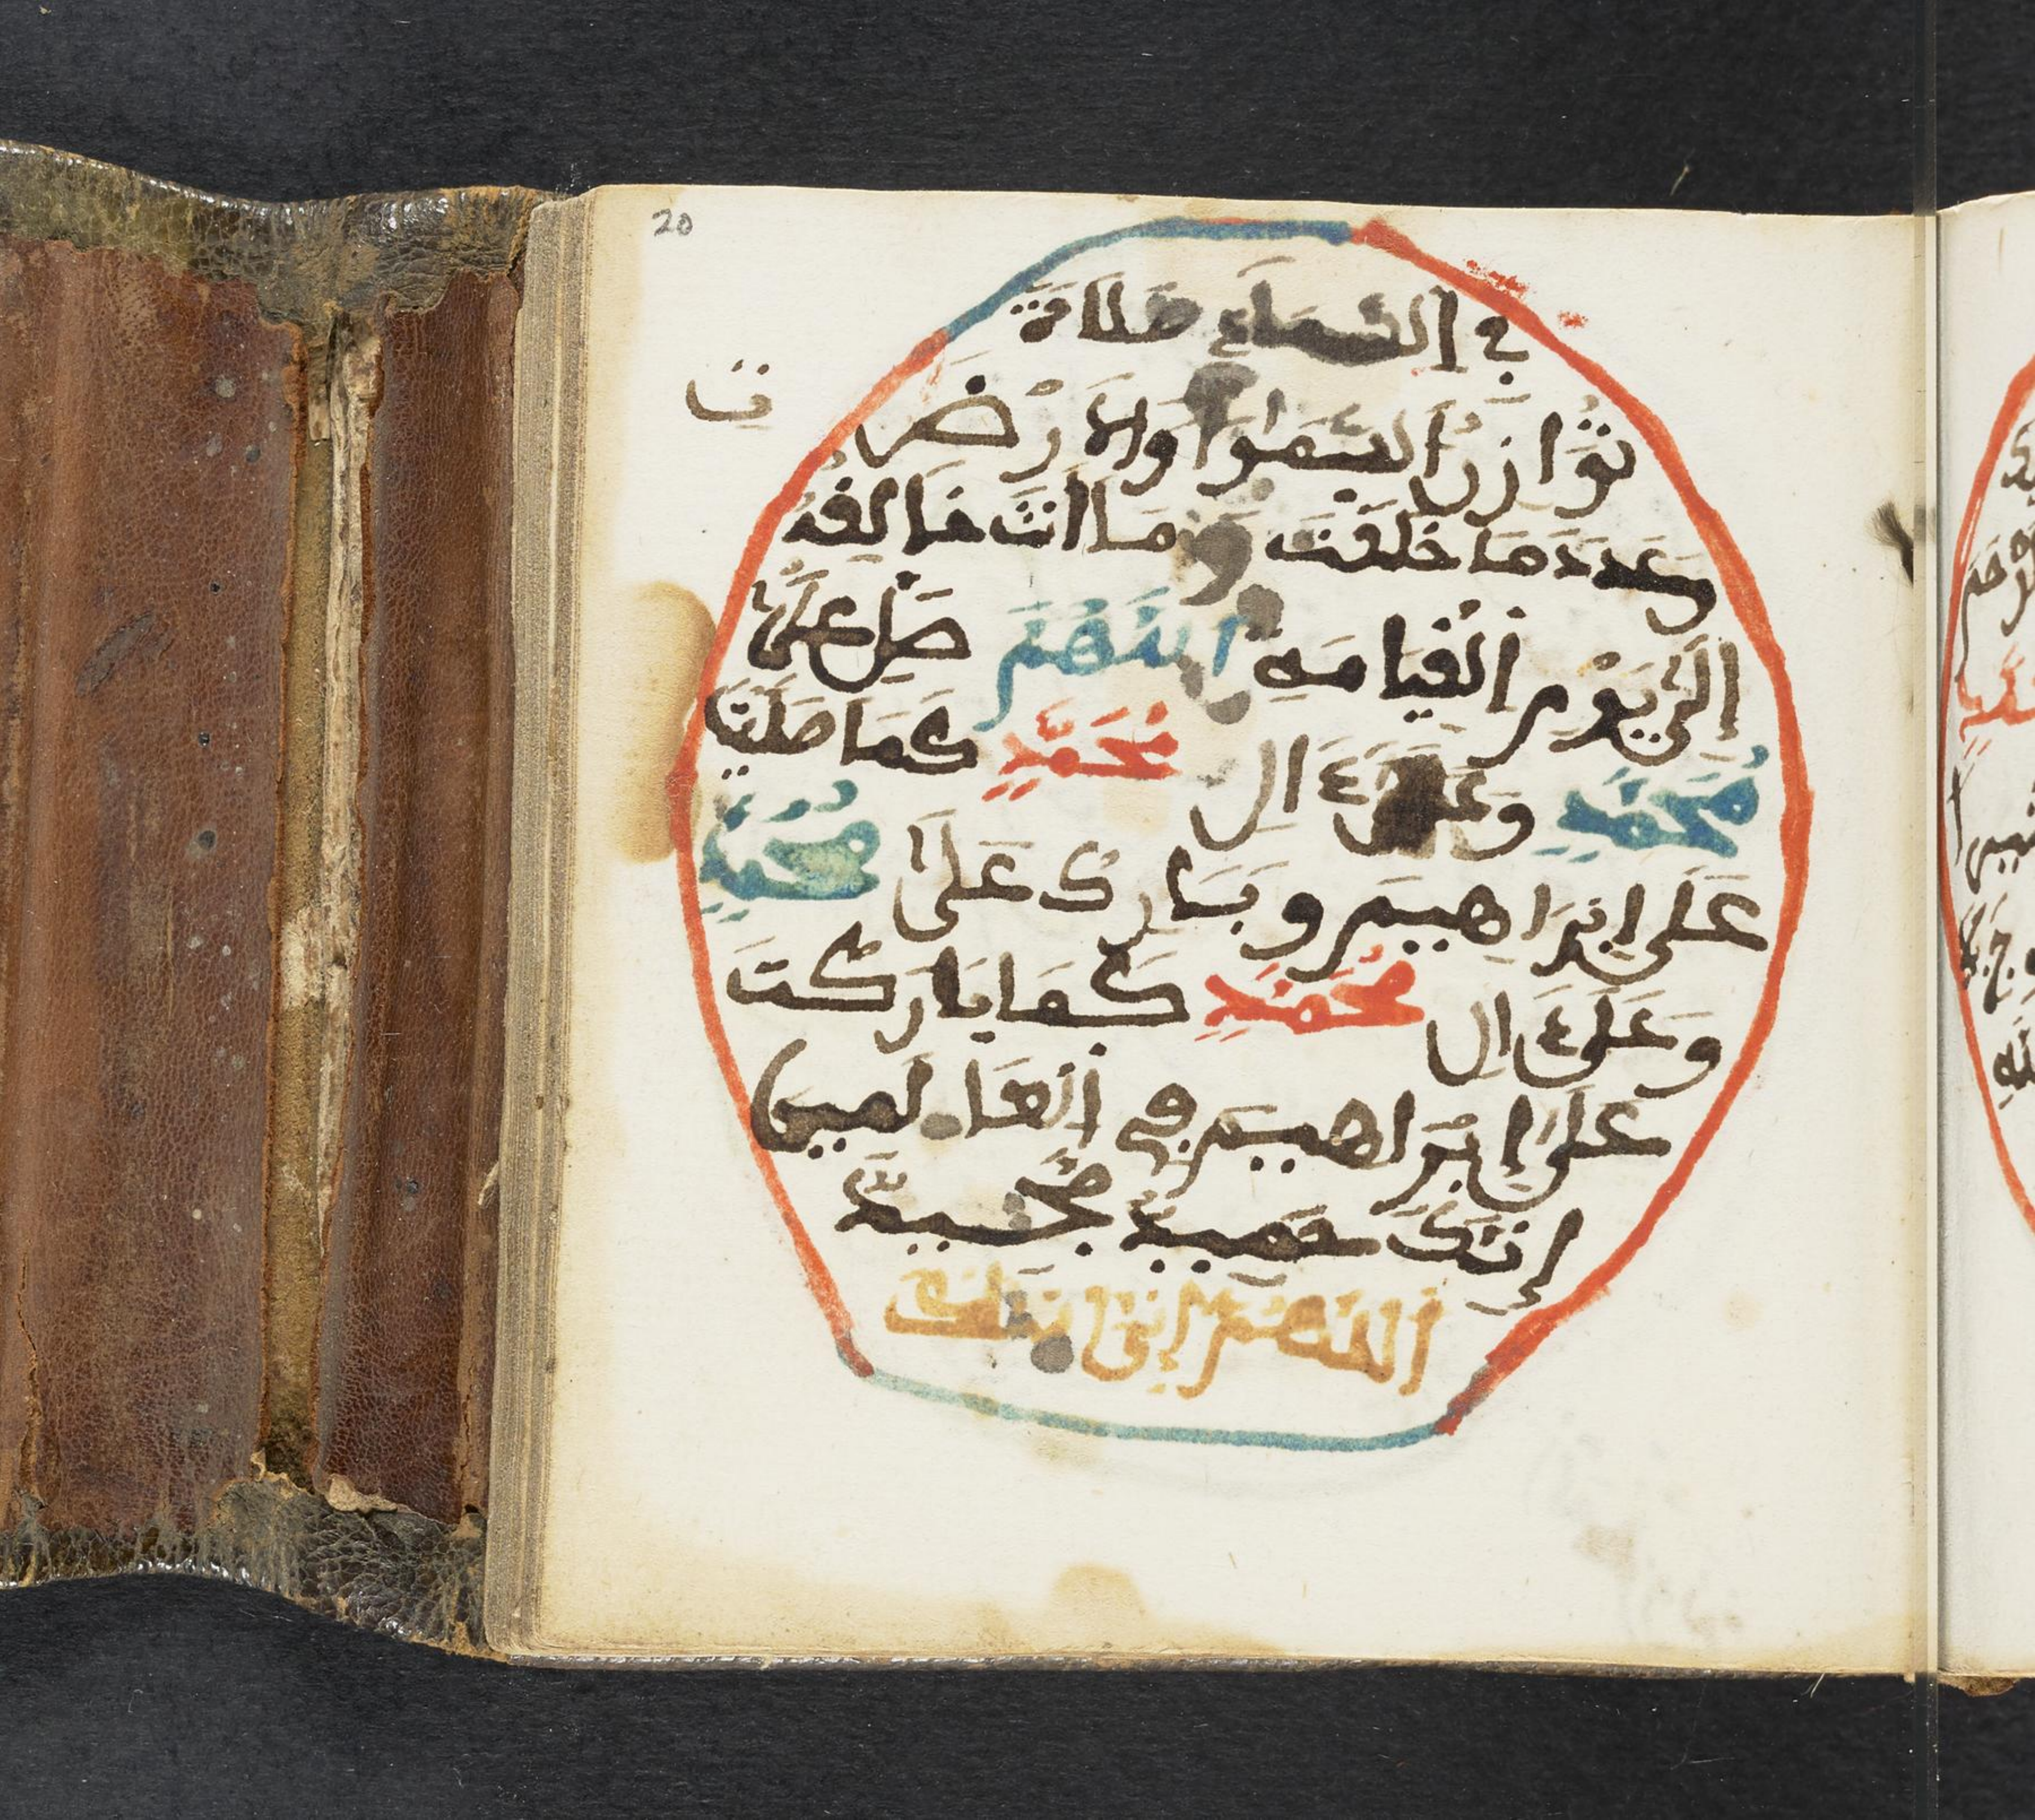 20
في السماء صلاة
توازن السموات والارض
وعدد ما خلقت وما انت خالقه
الى يوم القيامة اللهم صل على
محمد وعلى ءال محمد كما صليت
على ابراهيم وبارك على محمد
وعلى ءال محمد كما باركت
على ابراهيم في العالمين
إنك حميد مجيد
اللهم إني اسئلك